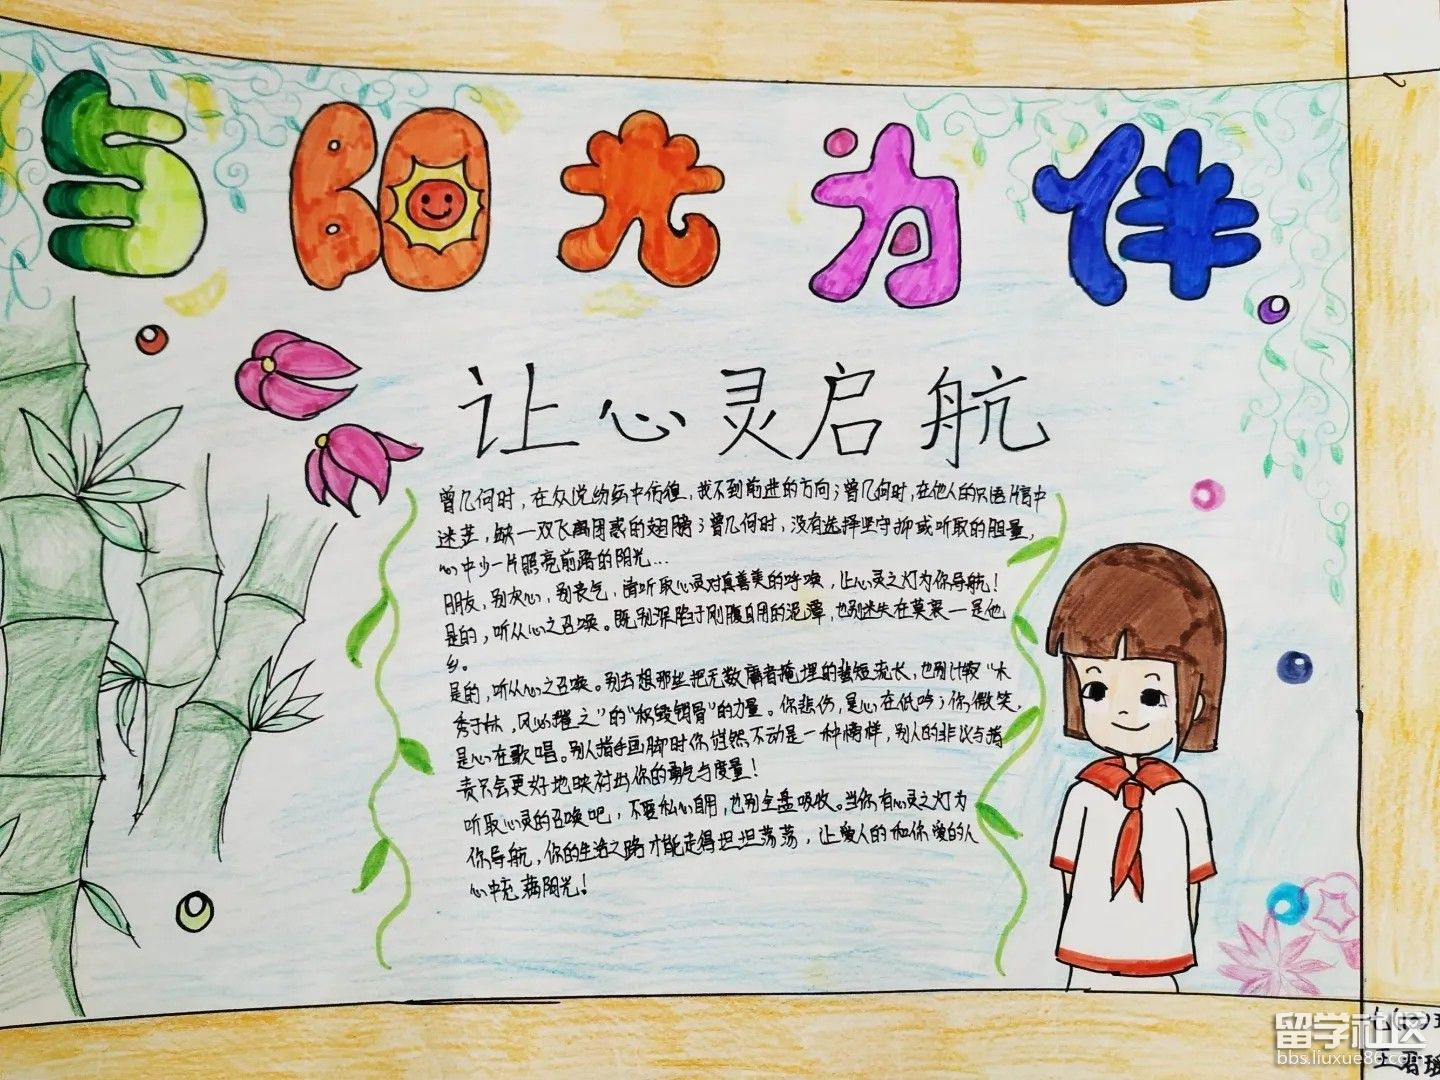 与阳光为伴
让心灵启航
曾几何时，在众说纷纭中彷徨，找不到前进的方向；曾几何时，在他人的只语片言中
迷茫，缺一双飞离困惑的翅膀；曾几何时，没有选择坚守抑或听取的胆量，
心中少一片照亮前路的阳光…
朋友，别灰心，别丧气，请听取心灵对真善美的呼唤，让心灵之灯为你导航！
是的，听从心之召唤。既别深陷于刚腹自用的泥潭，也别迷失在莫衷一是他
乡。
是的，听从心之召唤。别去想那些把无数庸者掩埋的蜚短流长，也别计较“木
秀于林，风必摧之”的“积毁销骨”的力量。你悲伤，是心在低吟；你微笑，
是心在歌唱。别人指手画脚时你岿然不动是一种榜样，别人的非议与指
责只会更好地映衬出你的勇气与度量！
听取心灵的召唤吧，不要私心自用，也别全盘吸收。当你有心灵之灯为
你导航，你的生活之路才能走得坦坦荡荡，让爱人的和你爱的人
心中充满阳光！
七(10)
王君瑶
留学社区
bbs.liuxue86.com